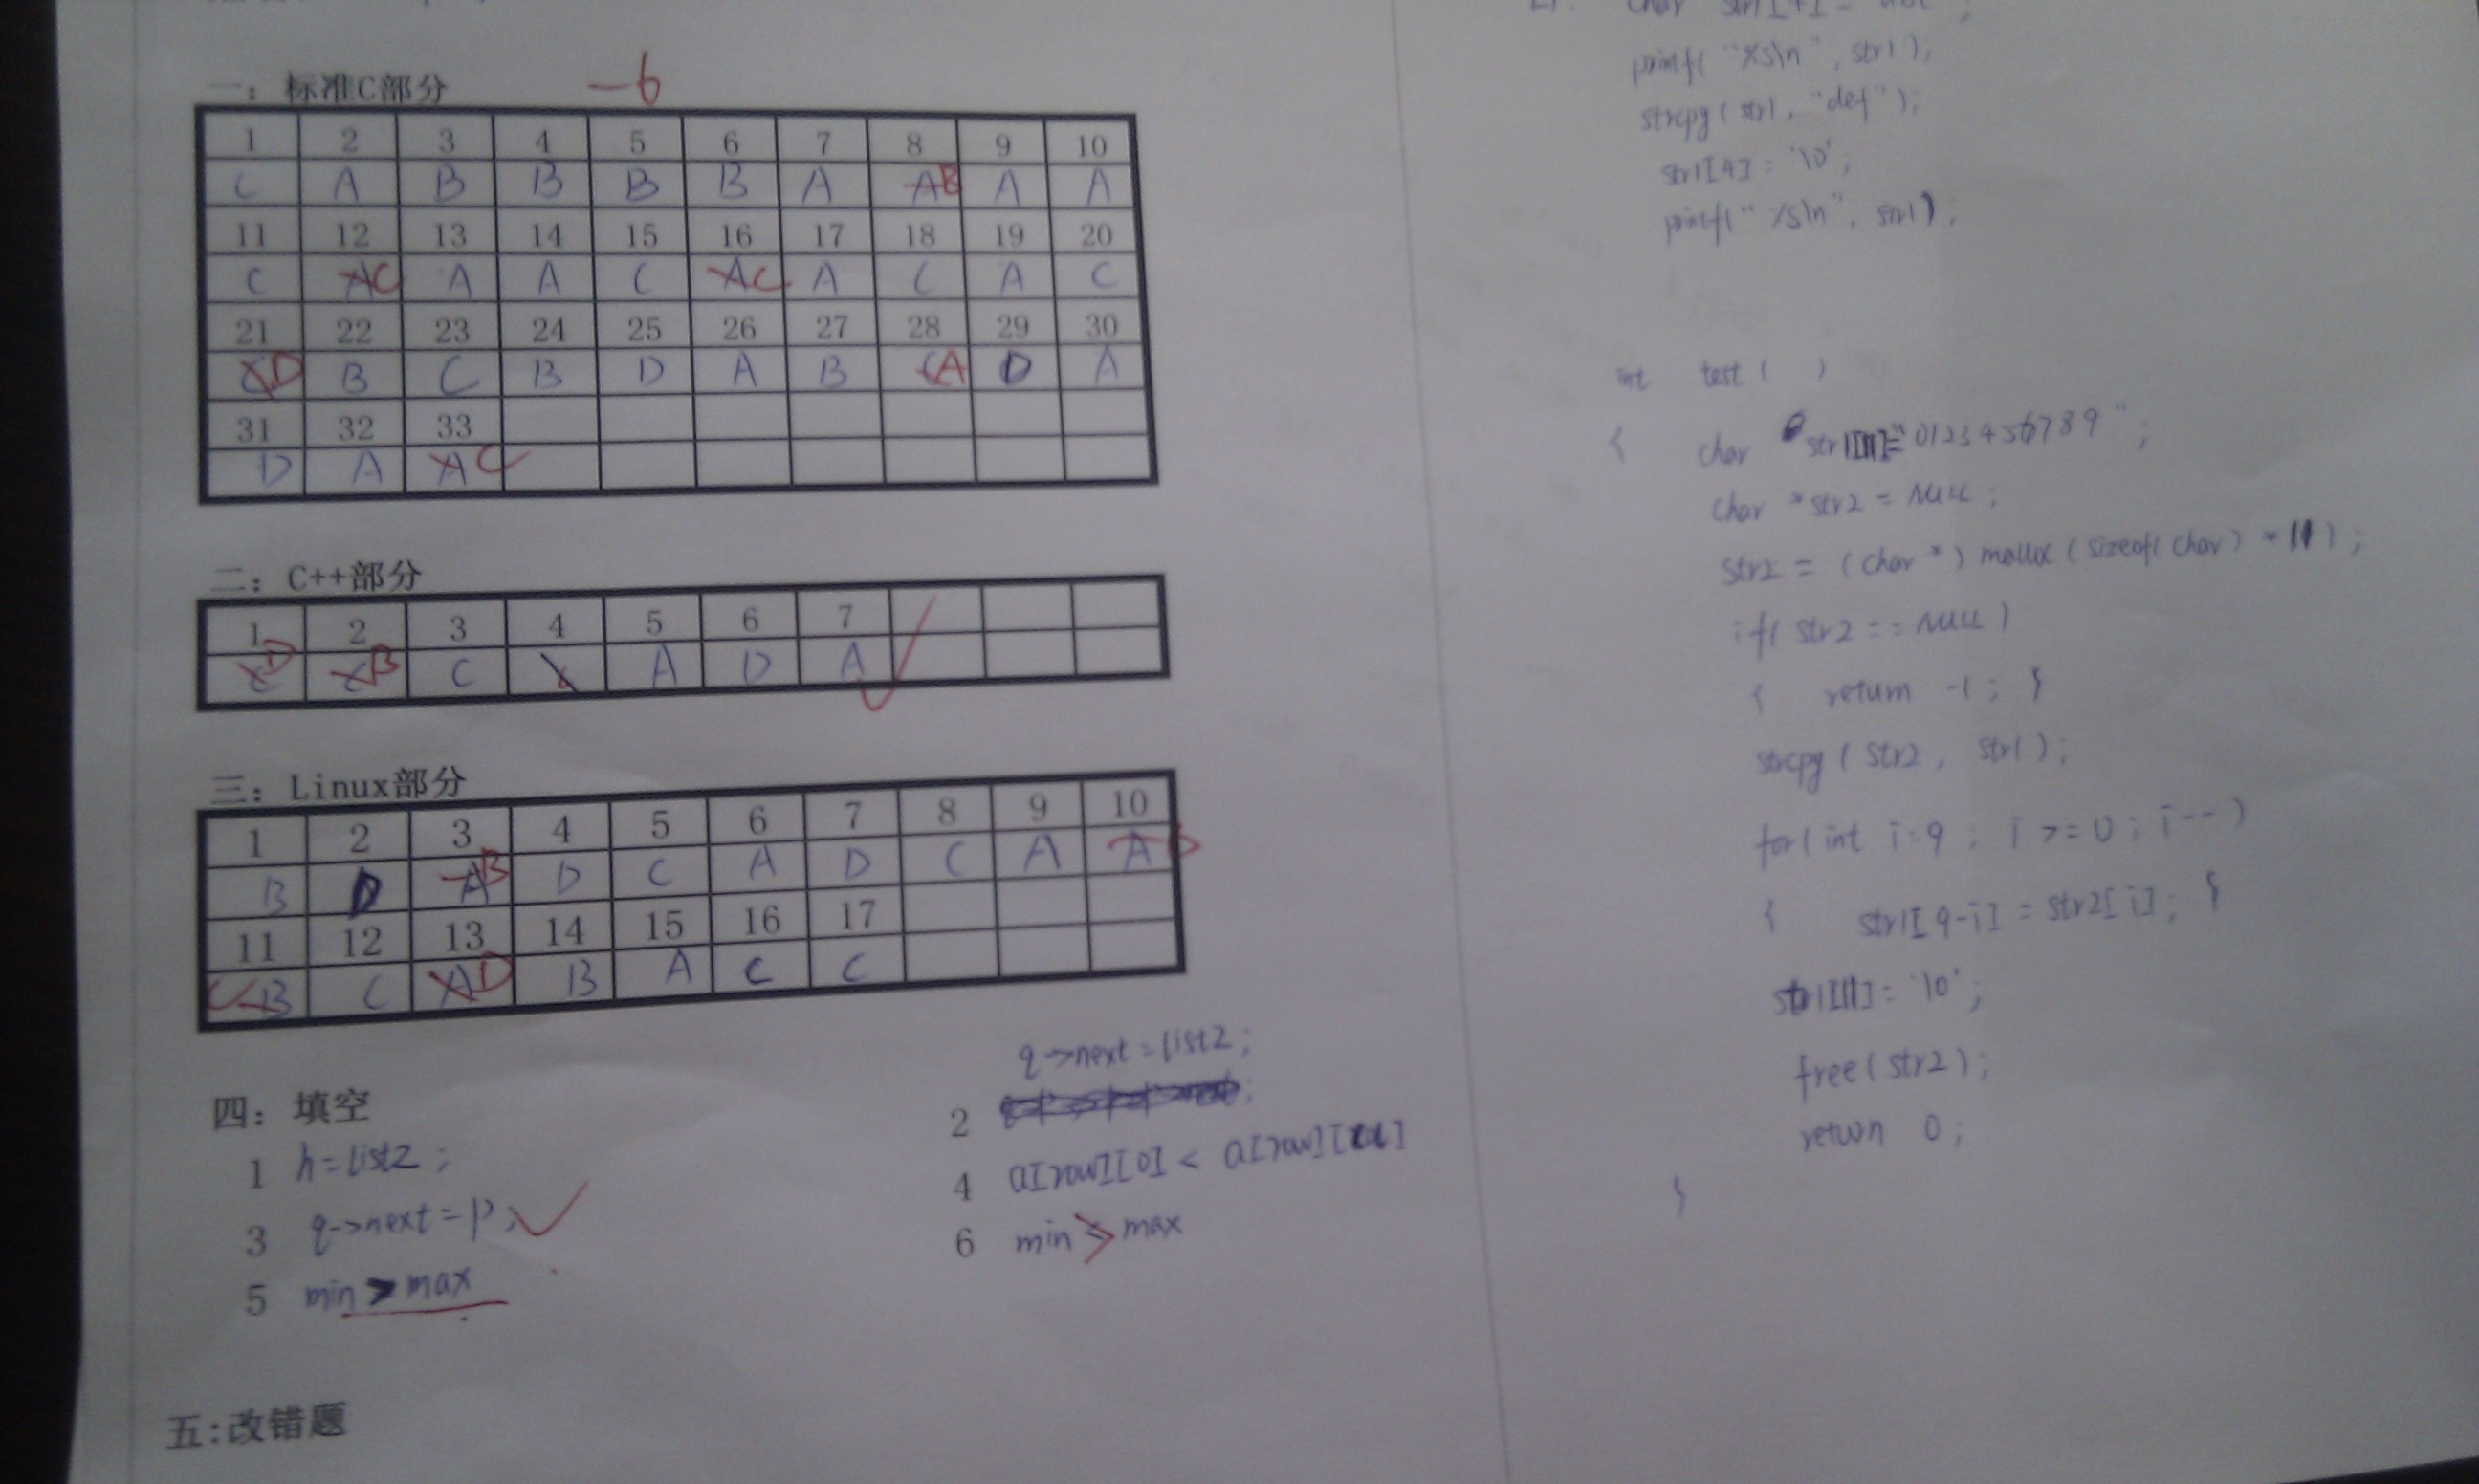 一: 标准C部分 -6
1 2 3 4 5 6 7 8 9 10
C A B B B B A A B A A
11 12 13 14 15 16 17 18 19 20
C A C A A C A C A C A C
21 22 23 24 25 26 27 28 29 30
C D B C B D A B C A D A
31 32 33
D A A C
二: C++部分
1 2 3 4 5 6 7
C D C B C A D A
三: Linux部分
1 2 3 4 5 6 7 8 9 10
B D A B D C A D C A A D
11 12 13 14 15 16 17
C B C A D B A C C
四: 填空
1 h=list2;
q->next=list2;
2
3 q->next=p;
4 a[row][0] < a[row][col]
5 min > max
6 min > max
五:改错题
char str1[4]=
printf("%s\n", str1);
strcpy(str1, "def");
str1[4]='\0';
printf("%s\n", str1);
int test( )
{ char str1[11]="0123456789";
char *str2 = NULL;
str2 = (char *) malloc(sizeof(char) * 11);
if( str2 == NULL)
{ return -1; }
strcpy(str2, str1);
for(int i=9; i>=0; i--)
{ str1[9-i] = str2[i]; }
str1[11]='\0';
free(str2);
return 0;
}